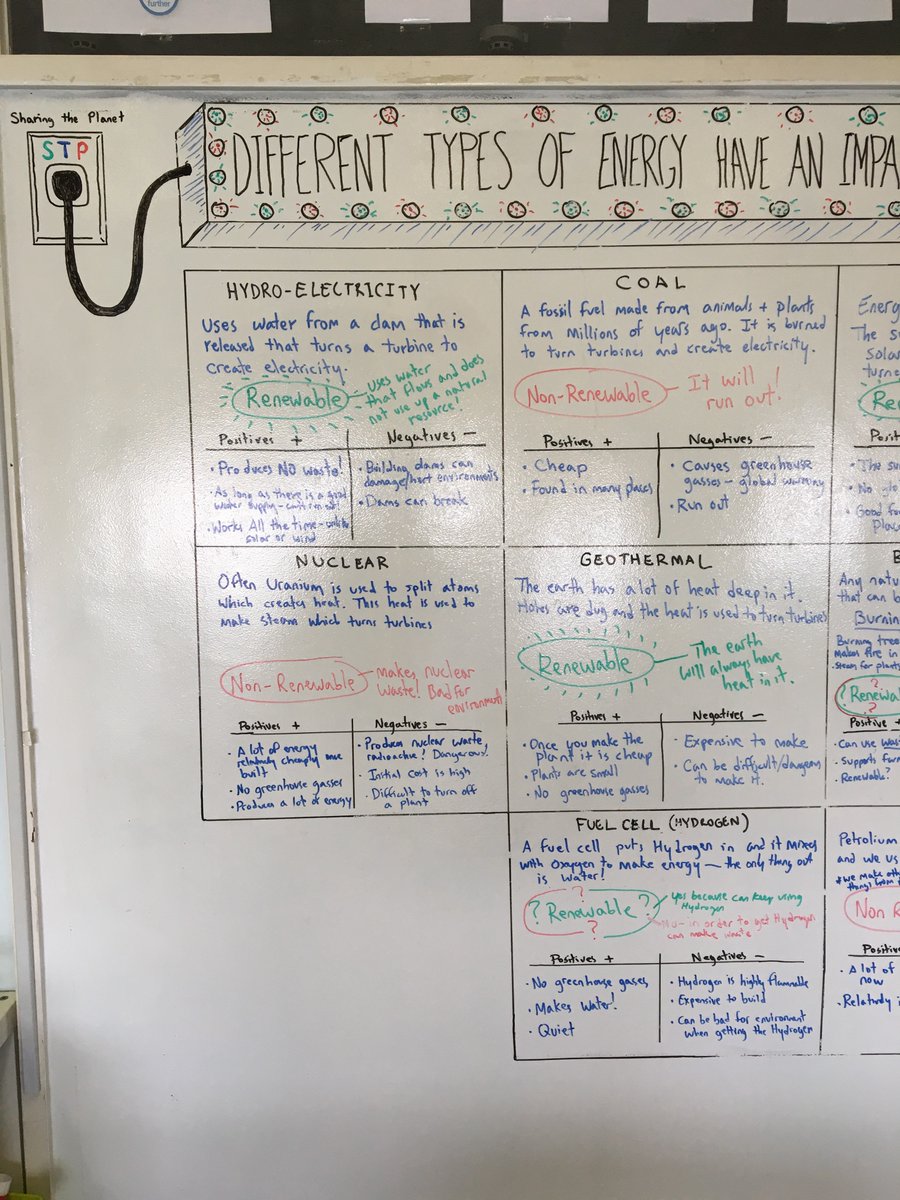 further
Sharing the Planet
STP
DIFFERENT TYPES OF ENERGY HAVE AN IMPA
HYDRO-ELECTRICITY
Uses water from a dam that is
released that turns a turbine to
create electricity.
Renewable
uses water
that flows and does
not use up a natural
resource!
Positives +
Negatives -
• Produces NO waste!
• As long as there is a good
water supply - can't run out!
• Works All the time - unlike
solar or wind
• Building dams can
damage/hurt environments
• Dams can break
COAL
A fossil fuel made from animals + plants
from millions of years ago. It is burned
to turn turbines and create electricity.
Non-Renewable
It will
run out!
Positives +
Negatives -
• Cheap
• Found in many places
• Causes greenhouse
gasses - global warming
• Run out
Energ
The s
solar
turne
Re
Posit
• The su
• No
• Good fo
Place
NUCLEAR
Often Uranium is used to split atoms
which creates heat. This heat is used to
make steam which turns turbines
Non-Renewable
Makes nuclear
waste! Bad for
environment
Positives +
Negatives -
• A lot of energy
relatively cheaply once
built
• No greenhouse gasses
• Produces a lot of energy
• Produces nuclear waste,
radioactive! Dangerous.
• Initial cost is high
• Difficult to turn off
a plant
GEOTHERMAL
The earth has a lot of heat deep in it.
Holes are dug and the heat is used to turn turbines
Renewable
The earth
will always have
heat in it.
Positives +
Negatives -
• Once you make the
plant it is cheap
• Plants are small
• No greenhouse gasses
• Expensive to make
• Can be difficult/dangerous
to make it.
B
Any natu
that can b
Burnin
Burning tree
makes fire in
steam for plants
?
Renewa
?
Positive +
• Can use was
• Supports farm
• Renewable?
FUEL CELL (HYDROGEN)
A fuel cell puts Hydrogen in and it mixes
with Oxygen to make energy - the only thing out
is water!
?
? Renewable ?
?
Yes because can keep using
Hydrogen
No - in order to get Hydrogen
can make waste
Positives +
Negatives -
• No greenhouse gases
• Makes Water!
• Quiet
• Hydrogen is highly flammable
• Expensive to build
• Can be bad for environment
when getting the Hydrogen
Petrolium
and we us
*we make oth
things from
Non R
Positiv
• A lot of
now
• Relatively i